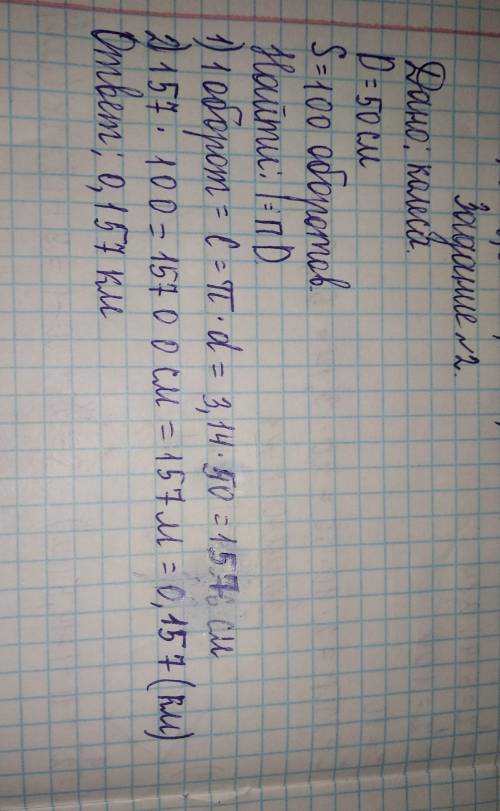 Задание №2.
Дано: колесо.
D = 50 см
S = 100 оборотов.
Найти: l = πD
1) 1 оборот = C = π · d = 3,14 · 50 = 157 см
2) 157 · 100 = 15700 см = 157 м = 0,157 (км)
Ответ: 0,157 км